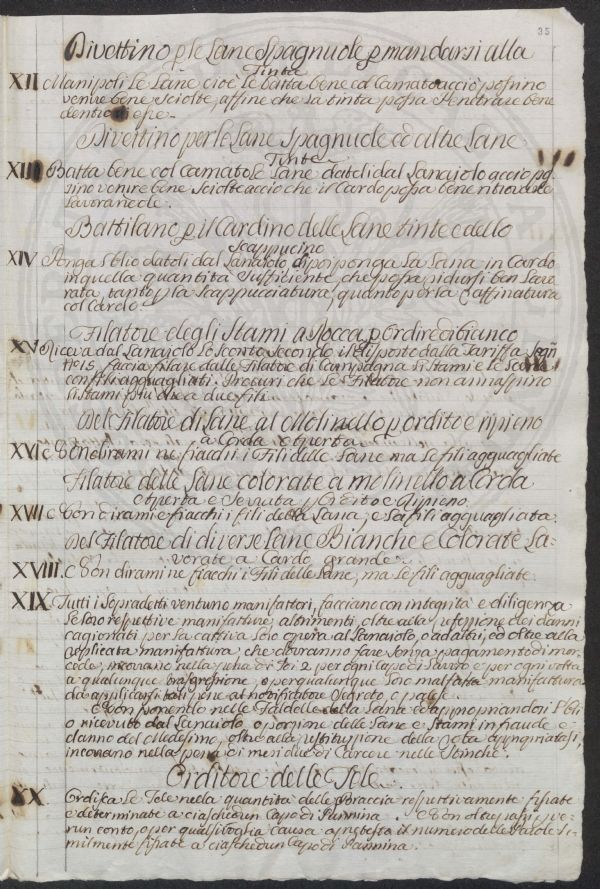 35
Divettino p le Lane Spagnuole p mandarsi alla
Tinta
XII Manipoli le Lane cioè le batta bene col Camato acciò possino
venire bene sciolte, affine che la tinta possa Penetrare bene
dentro esse.
Divettino per le Lane Spagnuole ed altre Lane
Tinte
XIII Batta bene col camato le Lane dateli dal Lanaiolo acciò pos
sino venire bene sciolte acciò che il Cardo possa bene ritrovare
Lavorandole.
Battilano p il Cardino delle Lane tinte e dello
Scappucino
XIV Ponga l'olio datoli dal Lanaiolo di poi ponga la Lana in Cardo
in quella quantità sufficiente, che possa ridursi ben lavo
rata, tanto p la Scappucciatura, quanto per la Caffinatura
col Cardo.
Filatore degli Stami a Rocca p Ordire di bianco
XV Riceva dal Lanaiolo lo Sconto secondo il disposto dalla Tariffa Segn
facia filare dalle Filatore di Campagna li Stami e le
con fili agguagliati. Procuri che le Filatore non annaspino
li Stami più che a due fili.
Del Filatore di Lane al Molinello p ordito e ripieno
a Corda aperta
XVI Non dirami ne fiacchi i Fili delle Lane ma le fili agguagliate
Filatore delle Lane colorate a molinello a Corda
aperta e Serrata p Ordito e Ripieno.
XVII Non dirami e fiacchi i fili della Lana, e la fili agguagliata.
Del Filatore di diverse Lane Bianche e Colorate La-
vorate a Cardo grande.
XVIII. Non dirami ne fiacchi i Fili delle Lane, ma le fili agguagliate.
XIX Tutti i Sopradetti ventuno manifattori, facciano con integrità e diligenza
le loro respettive manifatture, altrimenti, oltre alla refezione dei danni
cagionati per la cattiva loro opera al Lanaiolo, o ad altri, ed oltre alla
replicata manifattura, che dovranno fare senza pagamento di mer-
cede, incorrano nella pena di lire 2 per ogni capo di lavoro e per ogni volta
a qualunque trasgressione, o per qualunque loro malfatta manifattura
da applicarsi tali pene al notificatore segreto, o palese.
E non ponendo nelle Faldelle della Lana ed appropriandosi l'Oli
o ricevuto dal Lanaiolo, o porzione delle Lane e Stami in fraude e
danno del Medesimo, oltre alla restituzione della rota appropriatasi,
incorrano nella pena di mesi due di Carcere nelle Stinche.
Orditore delle Tele
XX Ordisca le Tele nella quantità delle Braccia respettivamente fissate
e determinate a ciascheun Capo di Pannina. E non oltrepassi ve-
run conto, o per qualsivoglia causa o pretesto il numero delle Paiole si-
milmente fissate a ciaschedun Capo di Pannina.